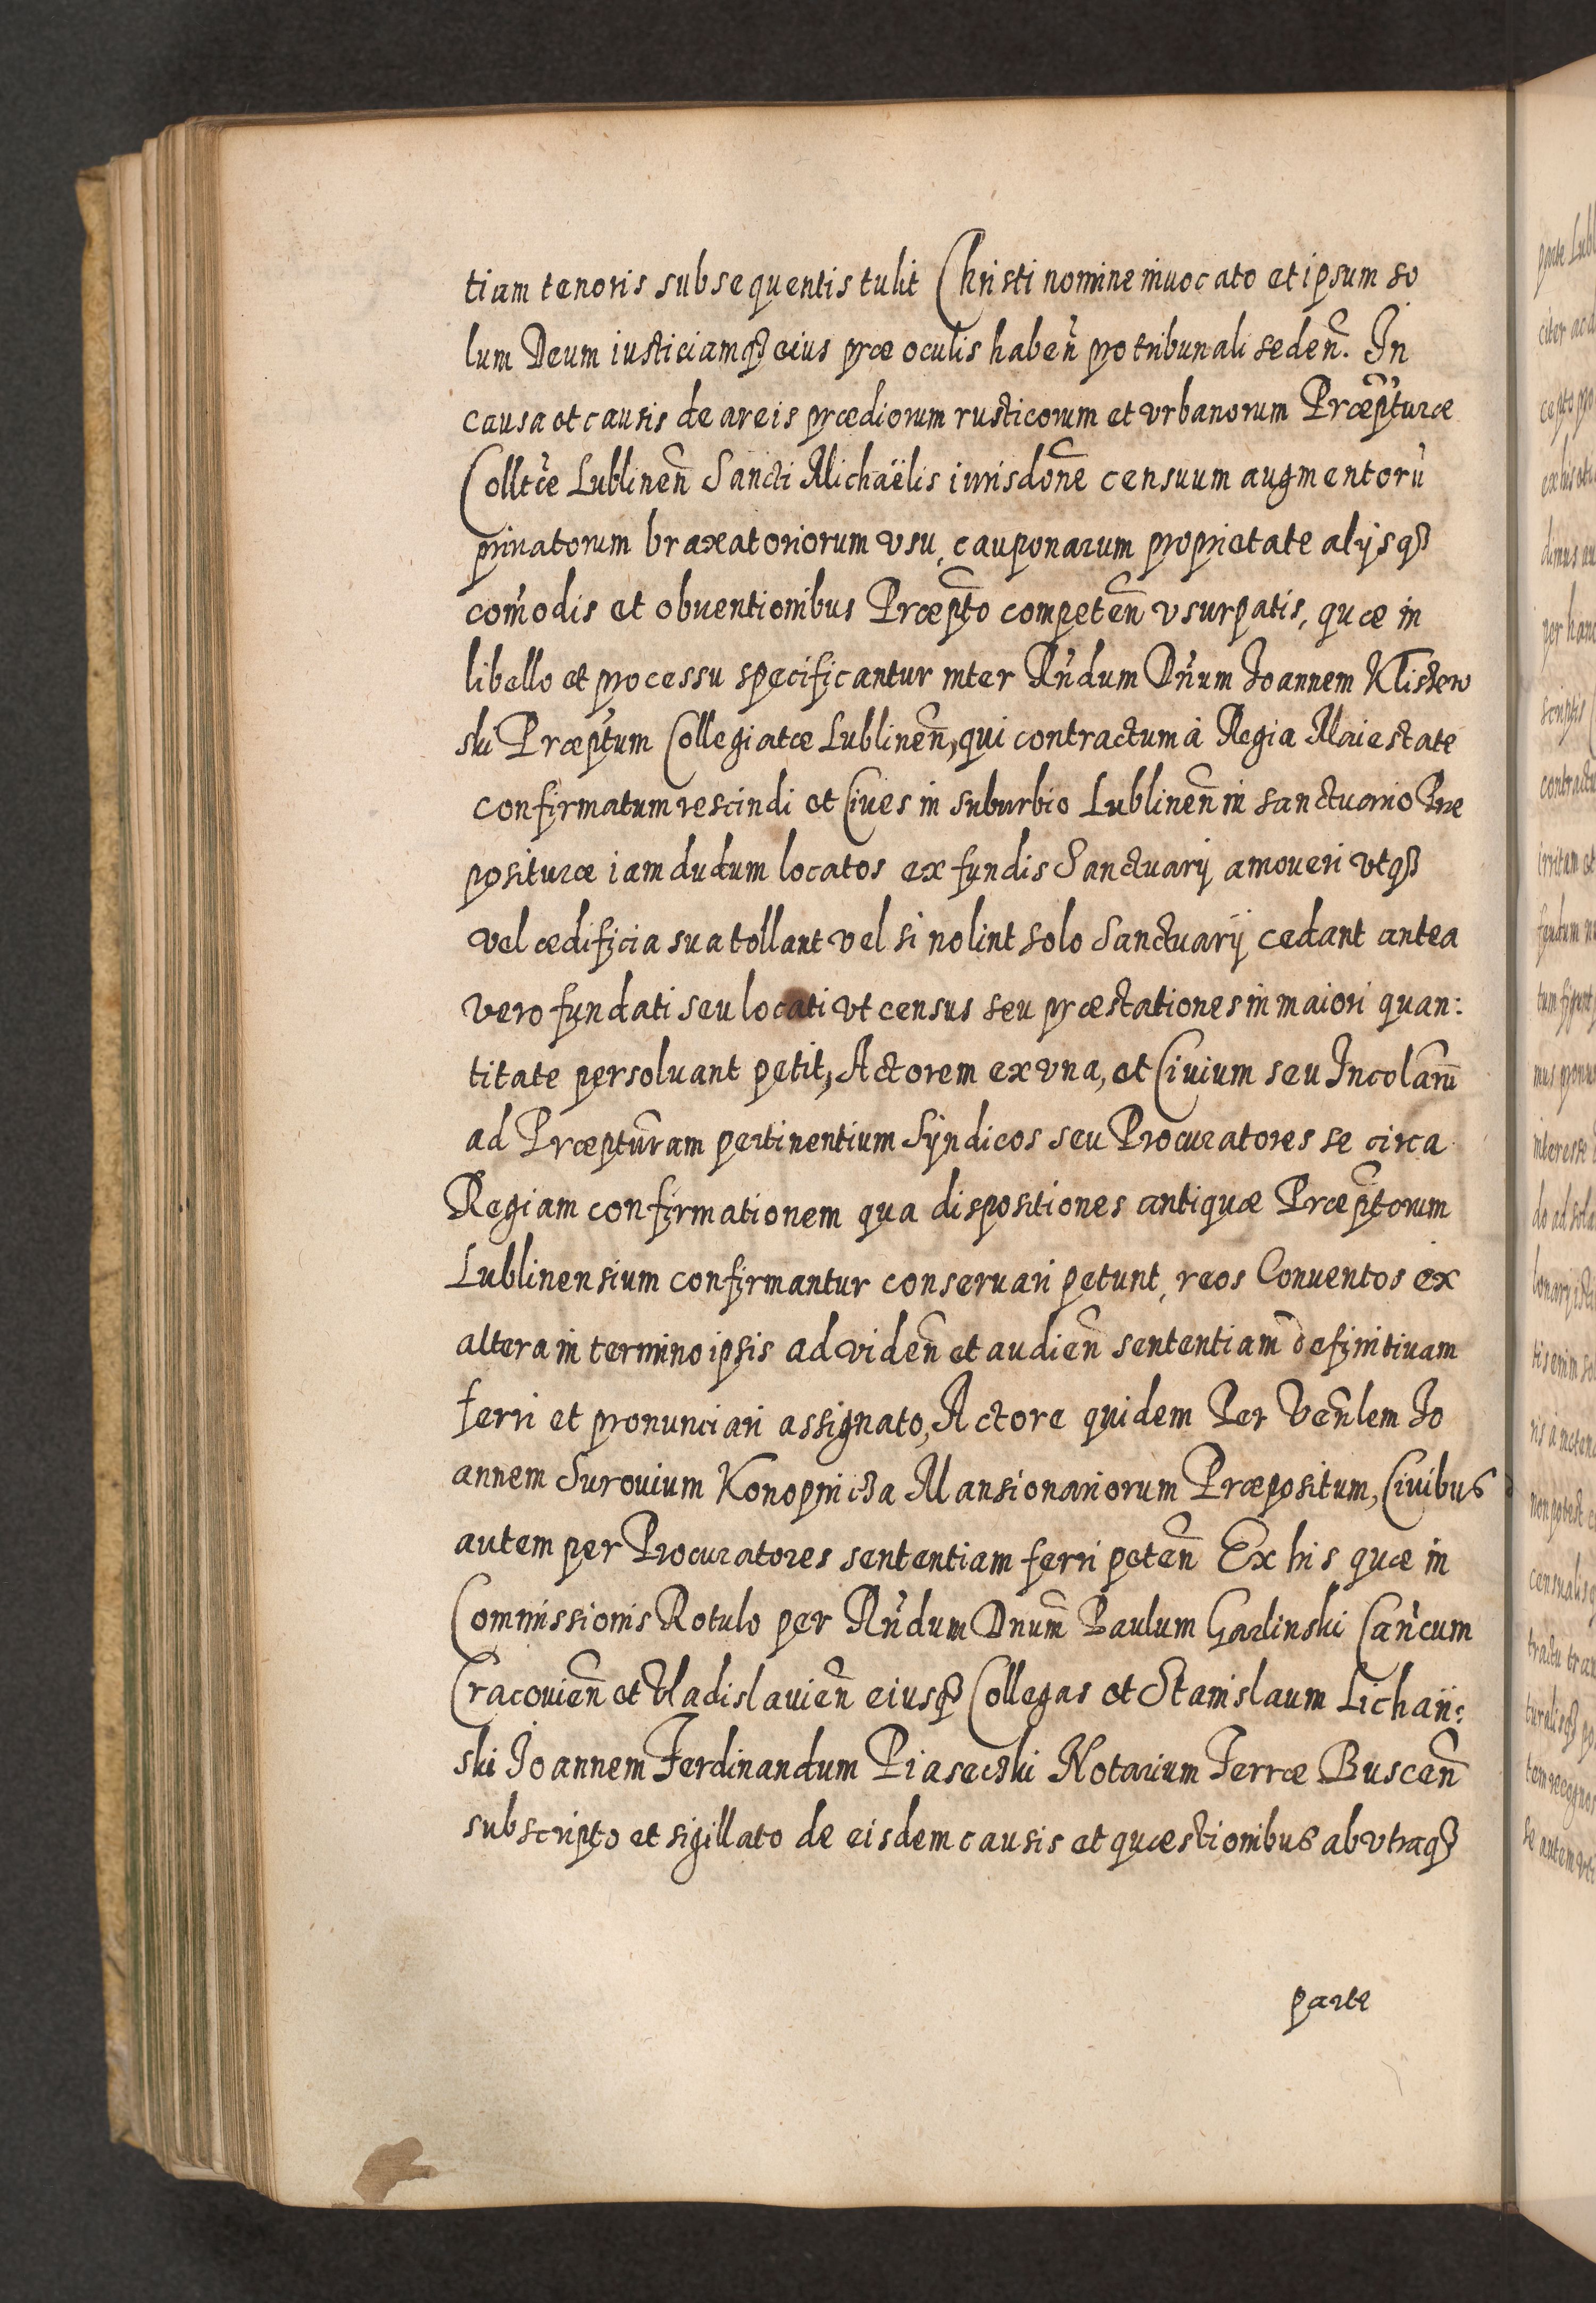 tiam tenoris subsequentis tulit Christi nomine invocato et ipsum so
lum Deum iusticiamqȝ eius præ oculis habeñ pro tribunali sedeñ. In
causa et causis de areis prædiorum rusticorum et vrbanorum Præpt̃uræ
Collt̃æ Lublineñ Sancti Michaëlis iurisdõne censuum augmentorũ
privatorum braxatoriorum vsu, cauponarum proprietate alijsqȝ
com̃odis et obventionibus Præpt̃o competeñ vsurpatis, quæ in
libello et processu specificantur inter Rñdum Dñum Ioannem Klischew
ski Præpt̃um Collegiatæ Lublineñ, qui contractum à Regia Maiestate
confirmatum rescindi et Cives in suburbio Lublineñ in sanctuario Præ
posituræ iamdudum locatos ex fundis Sanctuarij amoveri vtqȝ
vel ædificia sua tollant vel si nolint solo Sanctuarij cedant antea
vero fundati seu locati vt census seu præstationes in maiori quan:
titate persolvant petit, Actorem ex vna, et Civium seu Incolarũ
ad Præptũram pertinentium Syndicos seu Procuratores se circa
Regiam confirmationem qua dispositiones antiquæ Præpt̃orum
Lublinensium confirmantur conservari petunt, reos Conventos ex
altera in termino ipsis ad videñ et audieñ sententiam definitivam
ferri et pronunciari assignato, Actore quidem Per Veñlem Io
annem Surovium Konopnicza Mansionariorum Præpositum, Civibus
autem per Procuratores sententiam ferri peteñ Ex his quæ in
Commissionis Rotulo per Rñdum Dnum̃ Paulum Garlinski Cañcum
Cracovieñ et Vladislavieñ eiusqȝ Collegas et Stanislaum Lichań:
ski Ioannem Ferdinandum Piaseczki Notarium Terræ Busceñ
subscripto et sigillato de eisdem causis et quæstionibus ab vtraqȝ
parte